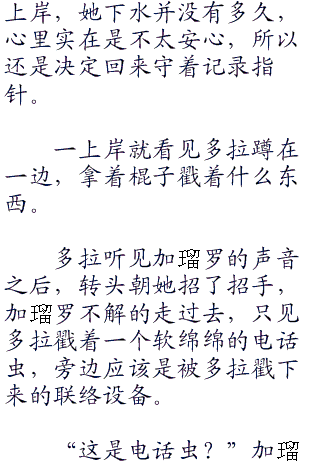 上岸，她下水并没有多久，
心里实在是不太安心，所以
还是决定回来守着记录指
针。
一上岸就看见多拉蹲在
一边，拿着棍子戳着什么东
西。
多拉听见加瑠罗的声音
之后，转头朝她招了招手，
加瑠罗不解的走过去，只见
多拉戳着一个软绵绵的电话
虫，旁边应该是被多拉戳下
来的联络设备。
“这是电话虫？”加瑠